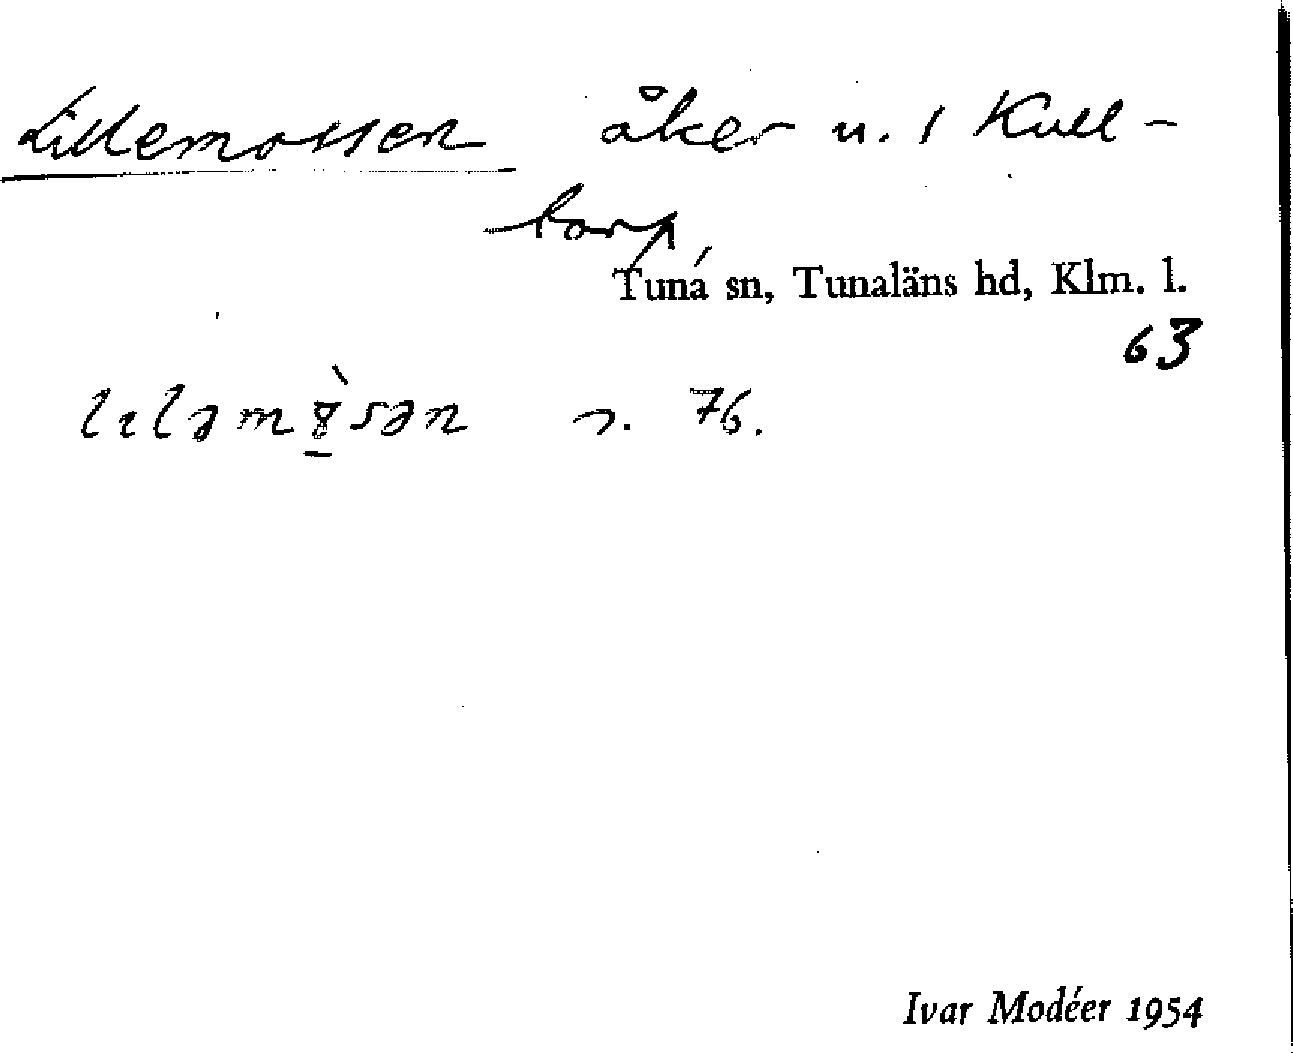 Lillemossen åker u. 1 Kull-
torp,
Tuna sn, Tunaläns hd, Klm. l.
63
76.
Ivar Modéer 1954